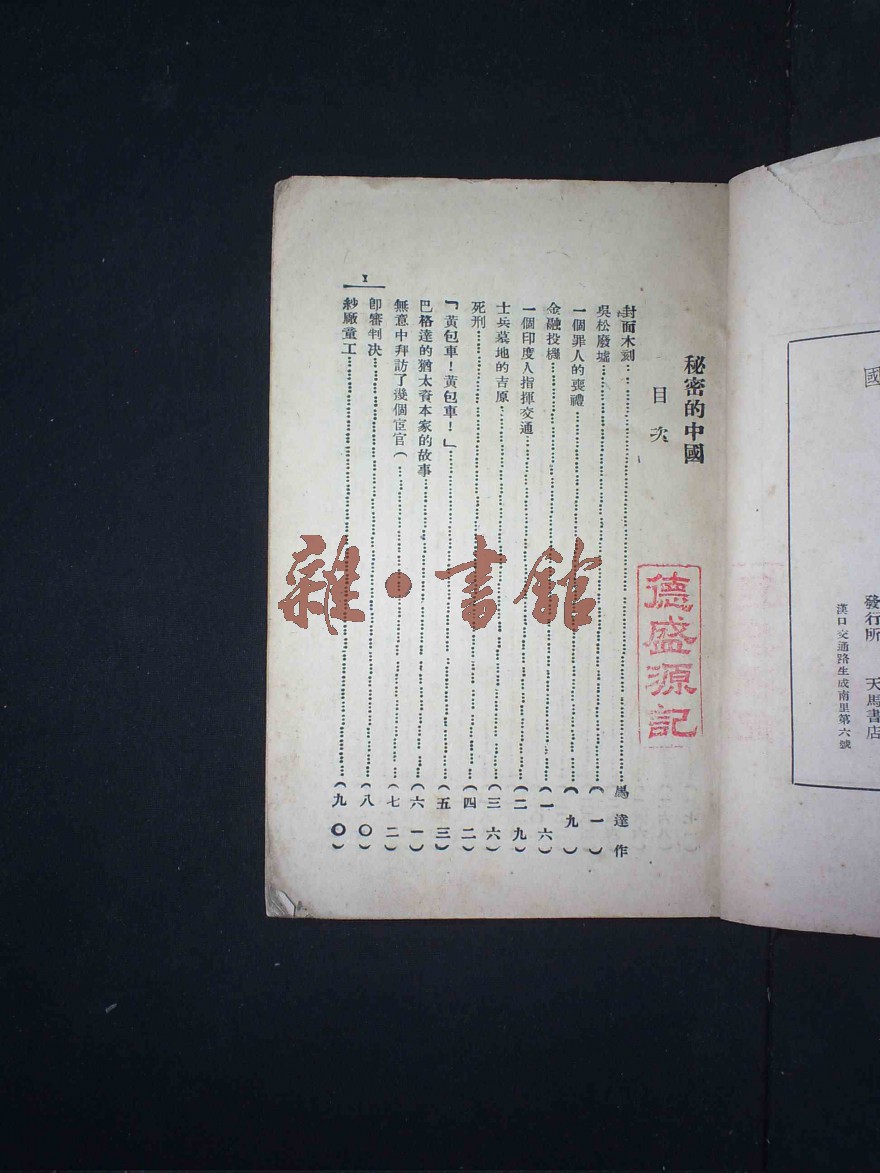 國
發行所 天馬書店
漢口交通路生成南里第六號
秘密的中國
目次
封面木刻……馬達作
吳松廢墟……(一)
一個罪人的喪禮……(九)
金融投機……(一六)
一個印度人指揮交通……(二九)
士兵墓地的吉原……(三六)
死刑……(四二)
「黃包車！黃包車！」……(五三)
巴格達的猶太資本家的故事……(六一)
無意中拜訪了幾個宦官(……(七二)
卽審判决……(八〇)
紗廠童工……(九〇)
1
德盛源記
雜·書館